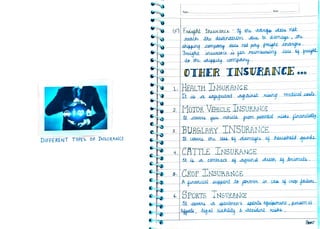 DIFFERENT TYPES OF INSURANCE
(c) Freight Insurance : If the voyage does not
reach the destination due to damage, the
shipping company does not pay freight charges.
Freight insurance is for reimbursing loss of freight
to the shipping company.
OTHER INSURANCE...
1. HEALTH INSURANCE
It is a safeguard against rising medical costs.
2. MOTOR VEHICLE INSURANCE
It covers you vehicle from potential risks financially.
3. BURGLARY INSURANCE
It covers the loss of damages of household goods
4. CATTLE INSURANCE
It is a contract of against death of animals.
5. CROP INSURANCE
A financial support to farmer in case of crop failure.
6. SPORTS INSURANCE
It covers a sportsmen sports equipment, personal
effects, legal liability & accident risks.